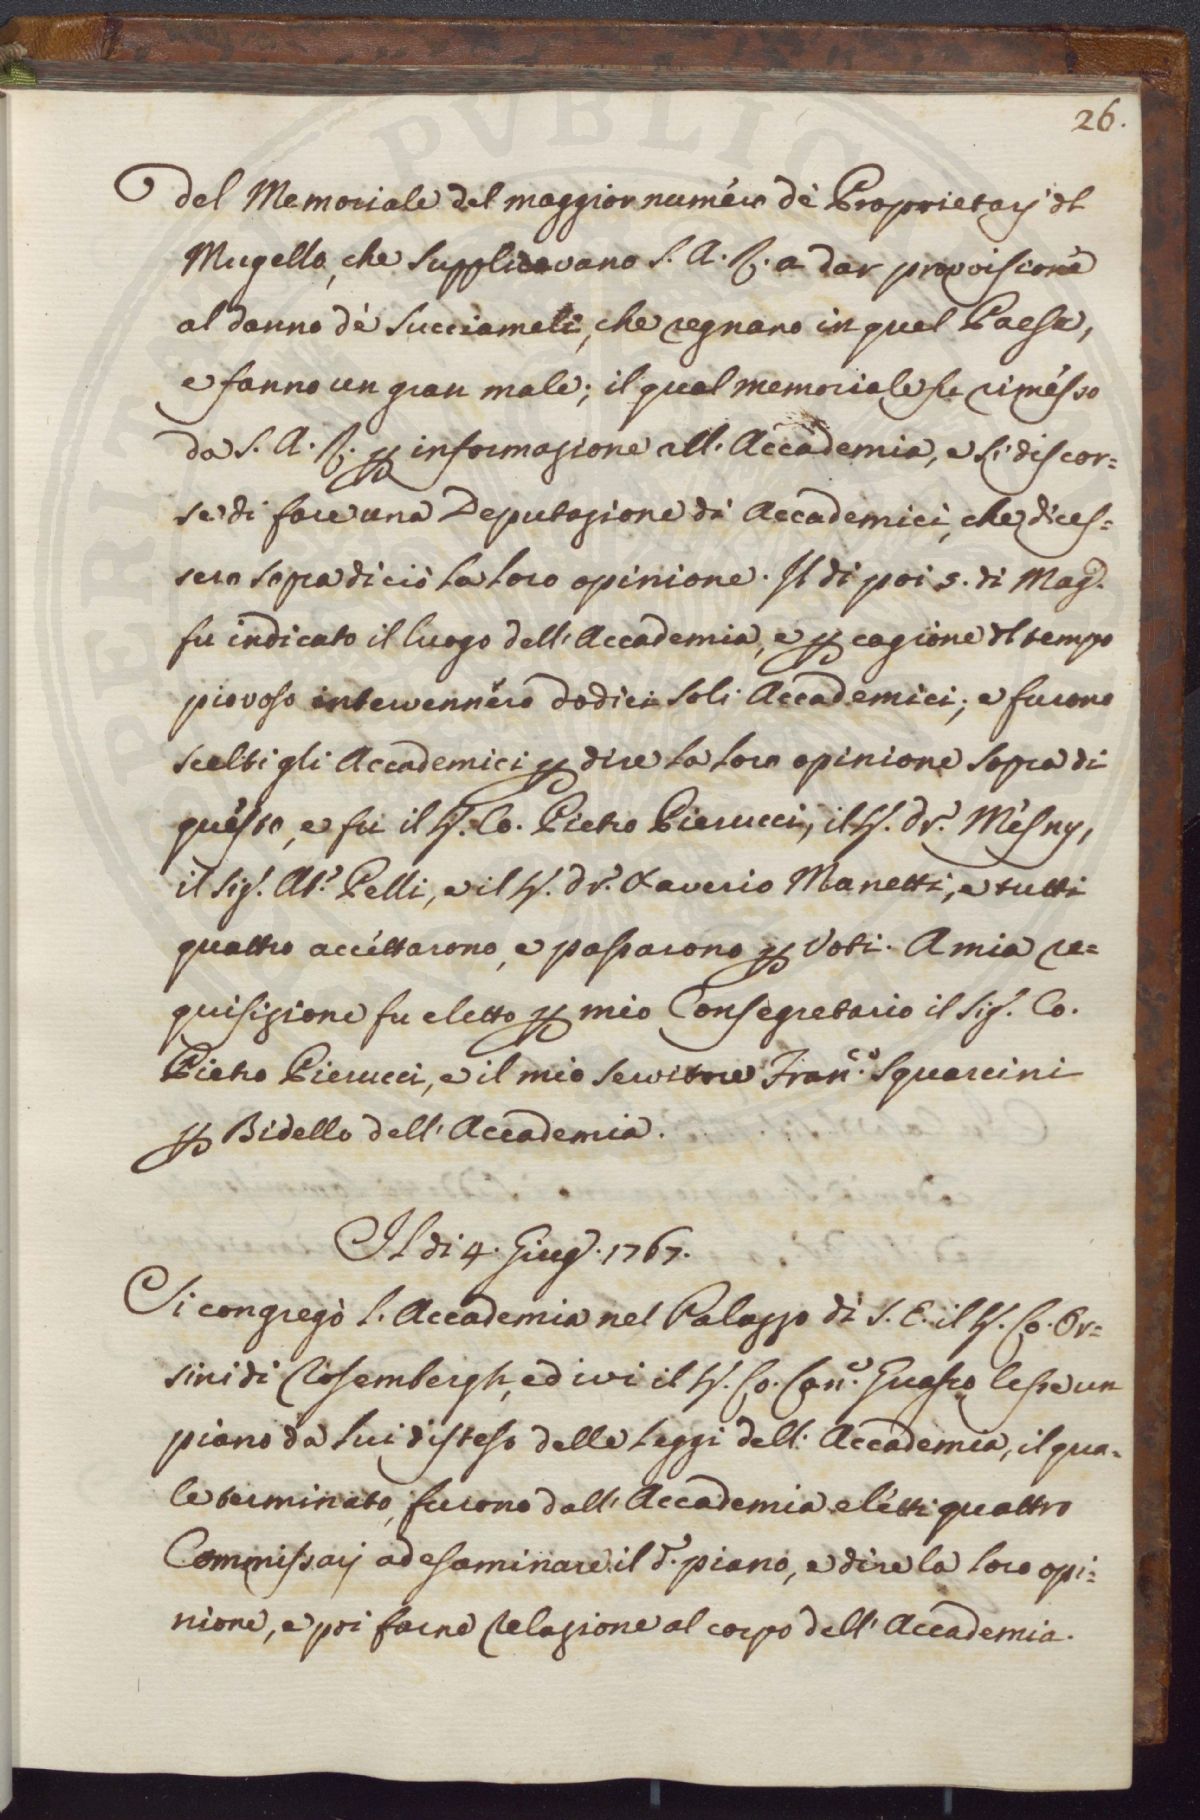 26.
del Memoriale del maggior numero dè Proprietarj del
Mugello, che supplicavano S. A. R. a dar provvisione
al danno dè succiameli, che regnano in quel Paese,
e fanno un gran male; il qual memoriale fu rimesso
da S. A. R. p informazione all'Accademia, e si discor=
se di fare una Deputazione di Accademici, che dices=
sero sopra di ciò la loro opinione. Il di poi 5. di Mag.
fu indicato il luogo dell'Accademia, e p cagione del tempo
piovoso intervennero dodici soli Accademici; e furono
scelti gli Accademici p dire la loro opinione sopra di
questo, e fu il S. Co. Pietro Pierucci, il S. Dr. Mesny,
il Sig. Ab. Pelli, e il S. Dr. Xaverio Manetti, e tutti
quattro accettarono, e passarono p Voti. A mia re=
quisizione fu eletto p mio Consegretario il Sig. Co.
Pietro Pierucci, e il mio servitore Fran.co Squarcini
p Bidello dell'Accademia.
Il di 4. Giug. 1767.
Si congregò l'Accademia nel Palazzo di S. E. il S. Co. Or=
sini di Rosembergh, ed ivi il S. Co. Can.o Guasco lesse un
piano da lui disteso delle leggi dell'Accademia, il qua=
le terminato, furono dall'Accademia eletti quattro
Commissarj ad esaminare il d.o piano, e dire la loro opi=
nione, e poi farne relazione al corpo dell'Accademia.